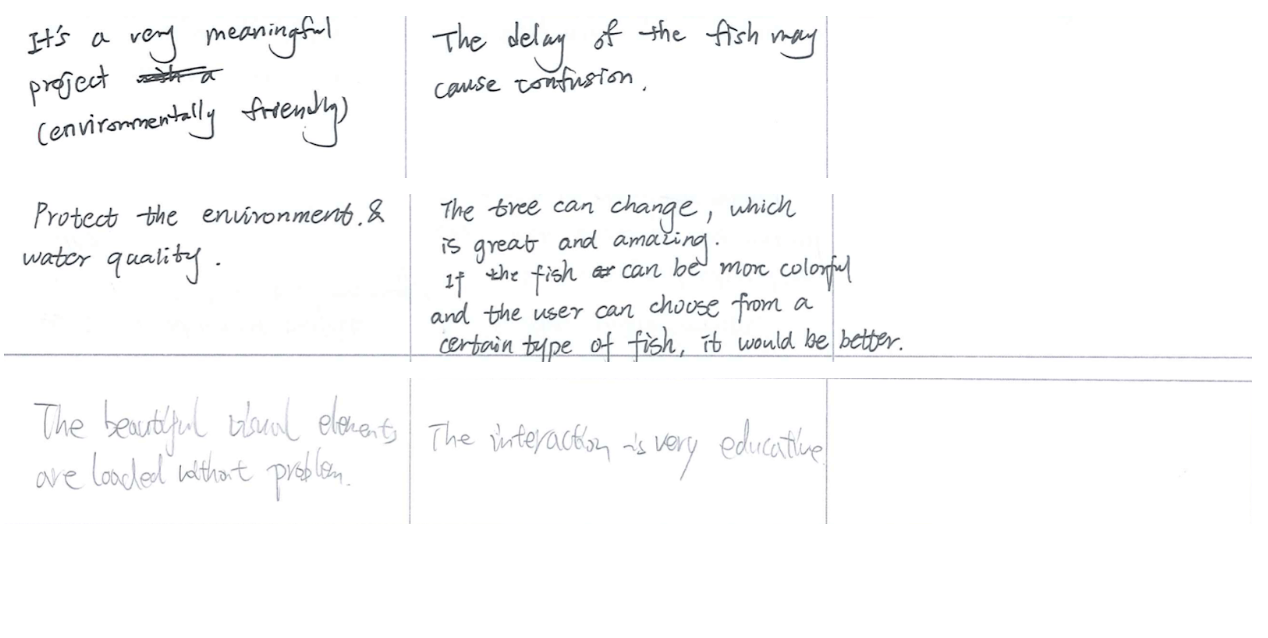 It's a very meaningful
project
(environmentally friendly)
The delay of the fish may
cause confusion.
Protect the environment. &
water quality.
The tree can change, which
is great and amazing.
If the fish can be more colorful
and the user can choose from a
certain type of fish, it would be better.
The beautiful visual elements
are loaded without problem.
The interaction is very educative